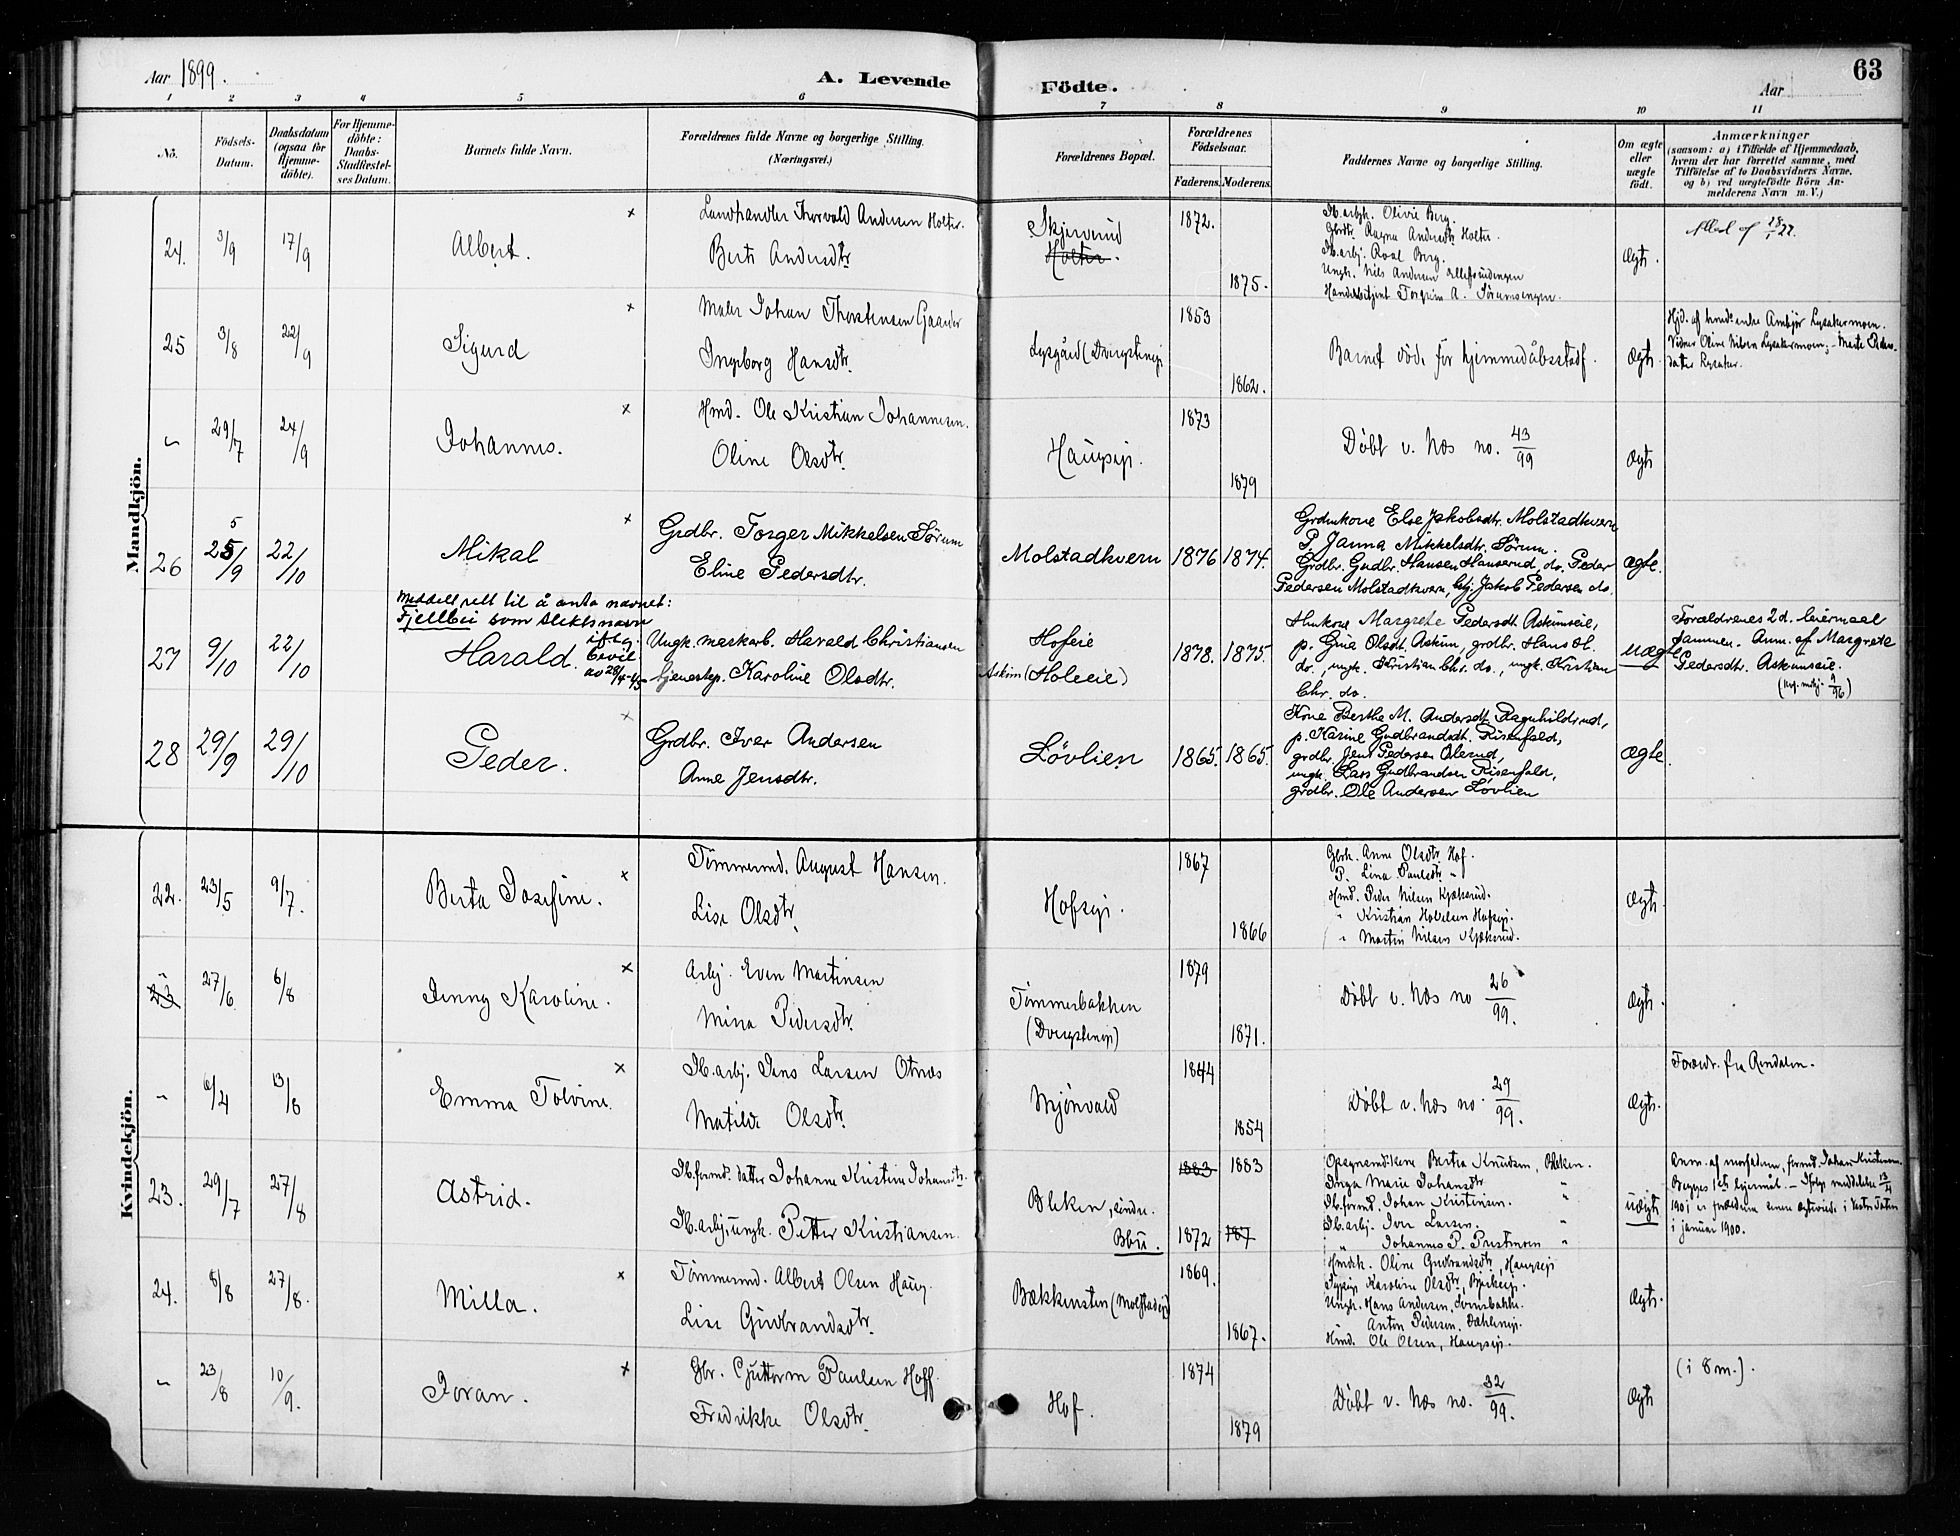 Aar 1899.
A. Levende Födte.
Aar
63
1 2 3 4 5 6 7 8 9 10 11
No.
Födsels-Datum.
Daabsdatum (ogsaa for Hjemmedöbte).
For Hjemmedöbte: Daabs-Stadfestelses Datum.
Barnets fulde Navn.
Forældrenes fulde Navne og borgerlige Stilling. (Næringsvei.)
Forældrenes Bopæl.
Forældrenes Födselsaar.
Faderens. Moderens.
Faddernes Navne og borgerlige Stilling.
Om ægte eller uægte födt.
Anmærkninger
(saasom: a) i Tilfælde af Hjemmedaab, hvem der har forrettet samme, med Tilföielse af to Daabsvidners Navne, og b) ved uægtefödte Börn Anmelderens Navn m. V.)
Mandkjön.
24. 3/9 17/9 Albert. ×
Landhandler Thorvald Andersen Holter.
Berte Andersdtr.
Skjerverud
Holter.
1872. 1875.
Ib.arbk. Olivie Berg.
Gbrdtr. Ragna Andersdtr Holter.
Ib.arbj. Roal Berg.
Ungk. Nils Andersen Ellefsrudengen
Handelsbetjent Torgrim A. Sörumsengen.
Ægte.
25 3/8 22/9 Sigurd ×
Maler Johan Thorstensen Gaarder
Ingeborg Hansdtr.
Lysgård (Dvergsteneje)
1853 1862.
Barnet döde før hjemmedåbsstadf.
Ægte.
Hjd. af hmds.enke Ambjør Lysakermoen.
Vidner Oline Nilsen Lysakermoen, Marte Peders-
datter Lysaker.
" 29/7 24/9 Johannes. ×
Hmd. Ole Kristian Johannesen.
Oline Olsdtr.
Haugseje.
1873 1879
Döbt v. Næs no. 43/99
Ægte
26 25/9 5 22/10 Mikal ×
Grdbr. Torger Mikkelsen Sørum
Eline Pedersdtr.
Molstadkvern 1876 1874.
Grdmkone Else Jakobsdtr. Molstadkvern
P. Janna Mikkelsdtr. Sörum.
Grdbr. Gudbr. Hansen Hanserud, do. Peder
Pedersen Molstadkvern, Jakob Pedersen do.
Ægte.
Meddelt rett til å anta navnet:
Fjellbei som slektsnavn
27 9/10 22/10 Harald.
Ungk. maskarb. Harald Christiansen
tjenestep. Karoline Olsdtr.
Hofeie
Askim (Holeeie)
1878. 1875.
Hmkone Margrete Pedersdt. Askimseie,
p. Gine Olsdt. Askim, grdbr. Hans H.
do., ungk. Kristian Chr. do., ungk. Kristian
Chr. do.
uægte
Forældrenes 2d. leiermaal
sammen. Anm. af Margrete
Pedersdtr. Askimseie.
28 29/9 29/10 Peder. ×
Grdbr. Iver Andersen
Anne Jensdtr.
Lövlien 1865. 1865.
Kone Berthe M. Andersdt. Ragnhildrud,
p. Karine Gudbrandsdt. Risenfald,
grdbr. Jens Pedersen Olerud,
ungk. Lars Gudbrandsen Risenfald,
grdbr. Ole Andersen Lövlien
Ægte.
Kvindekjön.
22. 23/5 9/7. Berta Josefine. ×
Tömmermd. August Hansen.
Lise Olsdtr.
Hofseje.
1867 1866
Gbrk. Anne Olsdtr. Hof.
P. Lina Paulsdtr. "
Hmd. Peder Nilsen Kjækerud.
" Kristian Hovelsen Hofseje.
" Martin Nilsen Kjækerud.
Ægte.
23 27/6 6/8 Jenny Karoline. ×
Arbj. Even Martinsen
Mina Pedersdtr.
Tömmerbakken
(Dvergsteneje)
1879 1871.
Döbt v. Næs no 26/99.
Ægte.
" 6/4 13/8 Emma Tolvine. ×
Ib.arbj. Jens Larsen Otnæs
Matilde Olsdtr.
Mjönvald
1844 1854
Döbt v. Næs no. 29/99.
Ægte.
Forældr. fra Rendalen.
23. 29/7 27/8 Astrid.
Ib.formd. datter Johanne Kristine Johansdtr.
Ib.arbj. ungk. Petter Kristiansen.
Bleken, söndre.
Bbu.
1883 1883
1872 187
Opsynsmdskone Bertea Knudsen, Bleken.
Inga Marie Johansdtr "
Ib.formd. Johan Kristensen. "
Ib.arbj. Iver Larsen. "
" Johannes P. Prestmoen "
uægte
Anm. af morfaderen, formd. Johan Kristensen.
Begges 1ste lejermål. – Ifölge meddelelse 13/4
1901 er forældrene senere ægteviede i Vestre Toten
i januar 1900.
24. 8/8 27/8. Milla. ×
Tömmermd. Albert Olsen Haug.
Lise Gudbrandsdtr.
Bækkensten (Molstadeje)
1869. 1867.
Hmdsk. Oline Gudbrandsdtr, Haugseje
Karoline Olsdtr.,
Ungk. Hans Andersen,
Anton Pedersen, Dæhleneje.
Hmd. Ole Olsen, Haugseje.
Ægte.
" 23/8 10/9. Joran. ×
Gbr. Guttorm Paulsen Hoff.
Fredrikke Olsdtr.
Hof.
1874 1879
Döbt v. Næs no. 32/99.
Ægte
(i 8 m.).